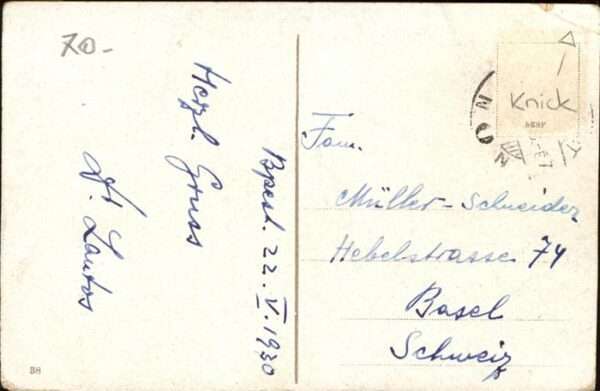 70.-
Herzl. Gruss
Dr. Lantos
Bpest. 22. V. 1930
Fam.
Müller-Schneider
Hebelstrasse 74
Basel
Schweiz
Knick
BH